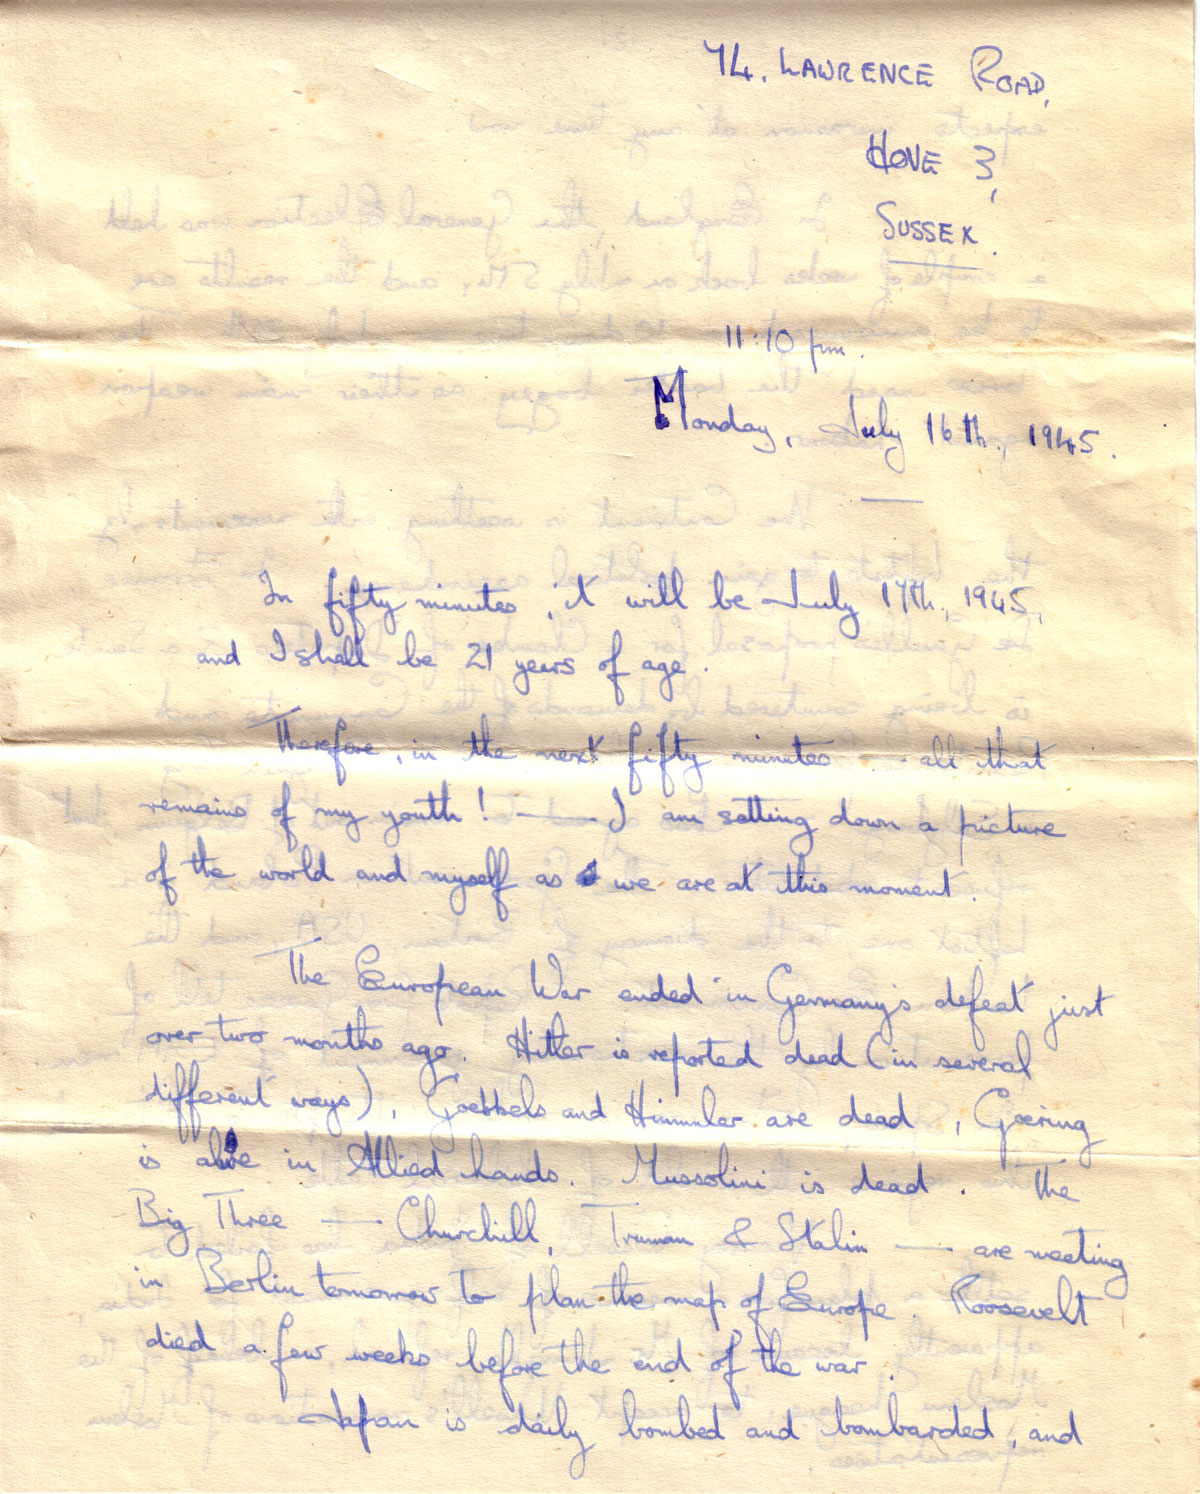 74, LAWRENCE ROAD,
HOVE 3,
SUSSEX.
11:10 pm.
Monday, July 16th., 1945.
In fifty minutes, it will be July 17th., 1945,
and I shall be 21 years of age.
Therefore, in the next fifty minutes — all that
remains of my youth! — I am setting down a picture
of the world and myself as we are at this moment.
The European War ended in Germany's defeat just
over two months ago. Hitler is reported dead (in several
different ways), Goebbels and Himmler are dead, Goering
is alive in Allied hands. Mussolini is dead. The
Big Three — Churchill, Truman & Stalin — are meeting
in Berlin tomorrow to plan the map of Europe. Roosevelt
died a few weeks before the end of the war.
Japan is daily bombed and bombarded, and